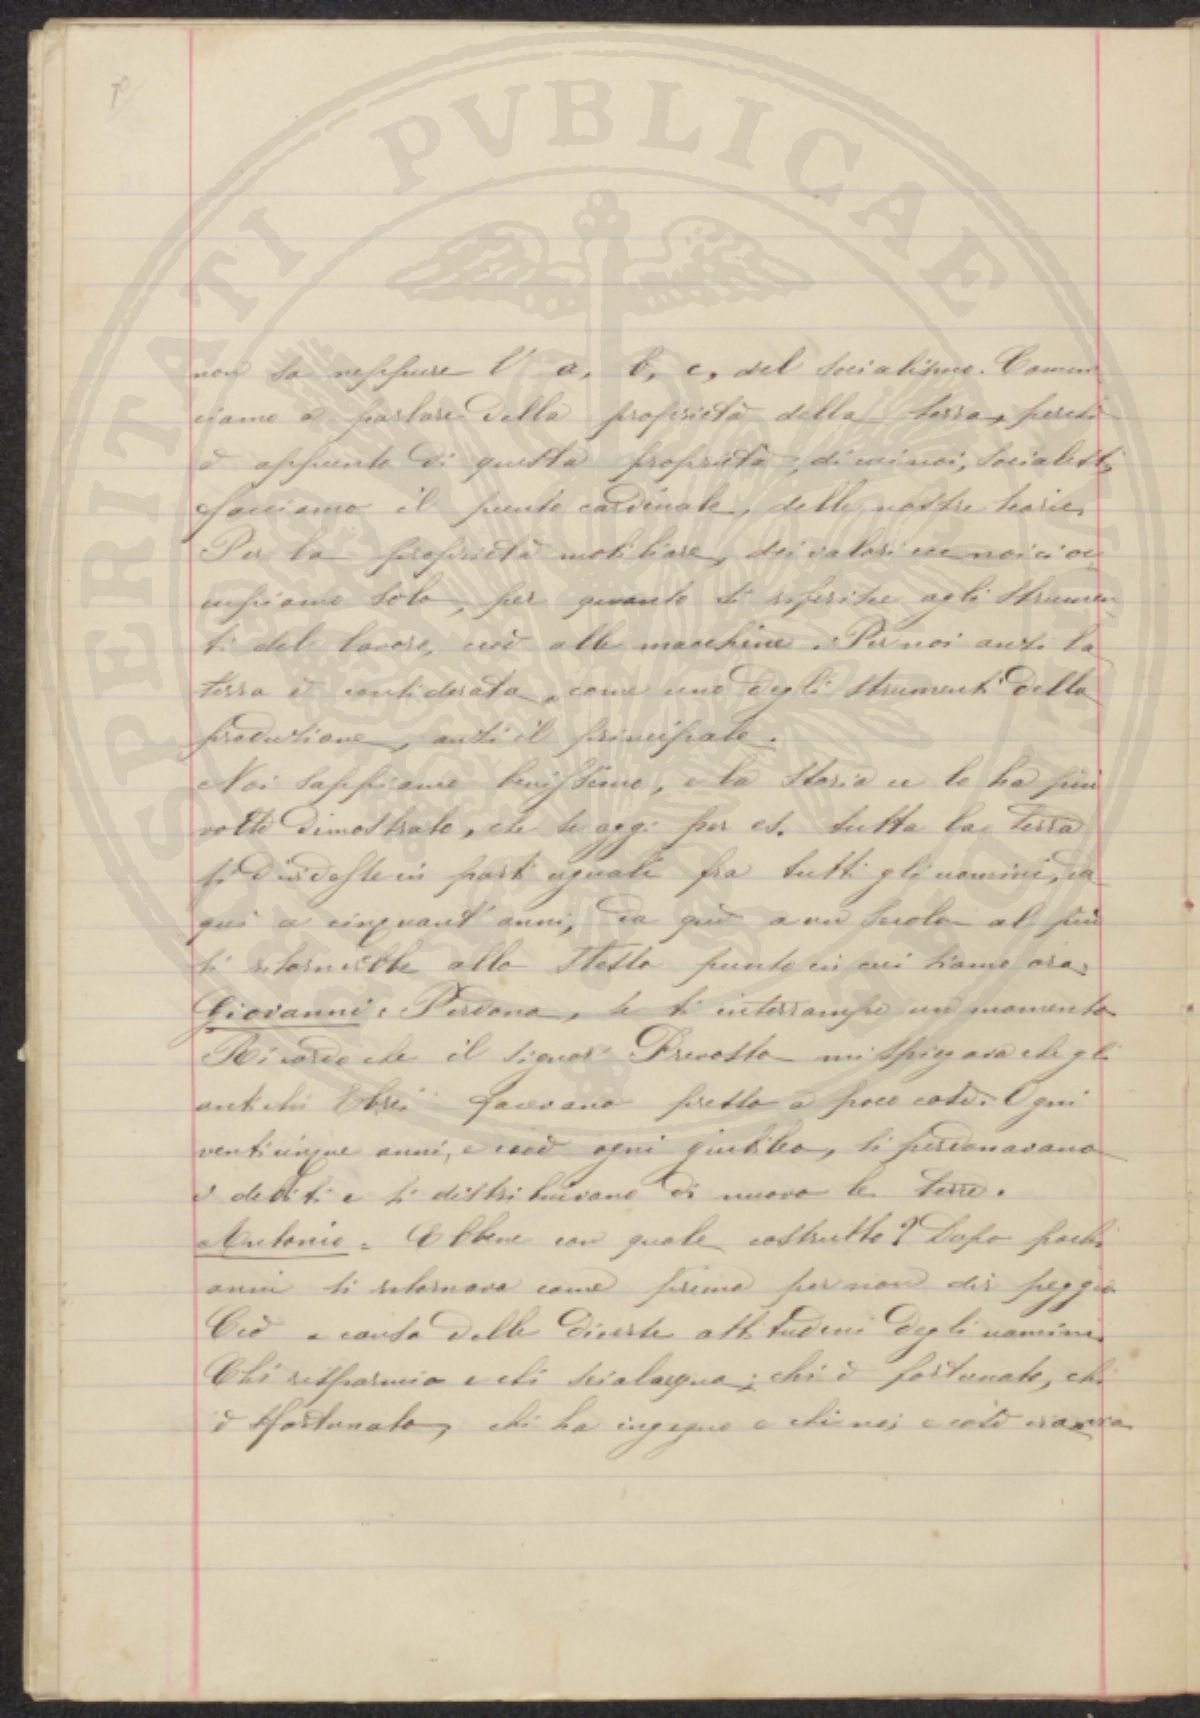 PROSPERITATI PUBLICAE
non sa neppure l' a, b, c, del socialismo. Comin
ciamo a parlare della proprietà della terra, perchè
è appunto di questa proprietà, di cui noi, socialisti,
facciamo il punto cardinale, delle nostre teorie.
Per la proprietà mobiliare, dei valori ecc noi ci oc
cupiamo solo, per quanto si riferisce agli strumen
ti del lavoro, cioè alle macchine. Per noi anzi la
terra è considerata, come uno degli strumenti della
produzione, anzi il principale.
Noi sappiamo benissimo, e la storia ce lo ha più
volte dimostrato, che se oggi per es. tutta la terra
si dividesse in parti uguali fra tutti gli uomini, da
qui a cinquant' anni, da qui a un secolo al più
si ritornerebbe allo stesso punto in cui siamo ora.
Giovanni: Perdona, se ti interrompo un momento
Ricordo che il signor Prevosto mi spiegava che gli
antichi Ebrei facevano presso a poco così. Ogni
venticinque anni, e cioè ogni giubileo, si perdonavano
i debiti e si distribuivano di nuovo le terre.
Antonio. Ebbene con quale costrutto? Dopo pochi
anni si ritornava come prima per non dir peggio
Ciò a causa delle diverse attitudini degli uomini
Chi risparmia e chi scialacqua; chi è fortunato, chi
è sfortunato, chi ha ingegno e chi no; e così